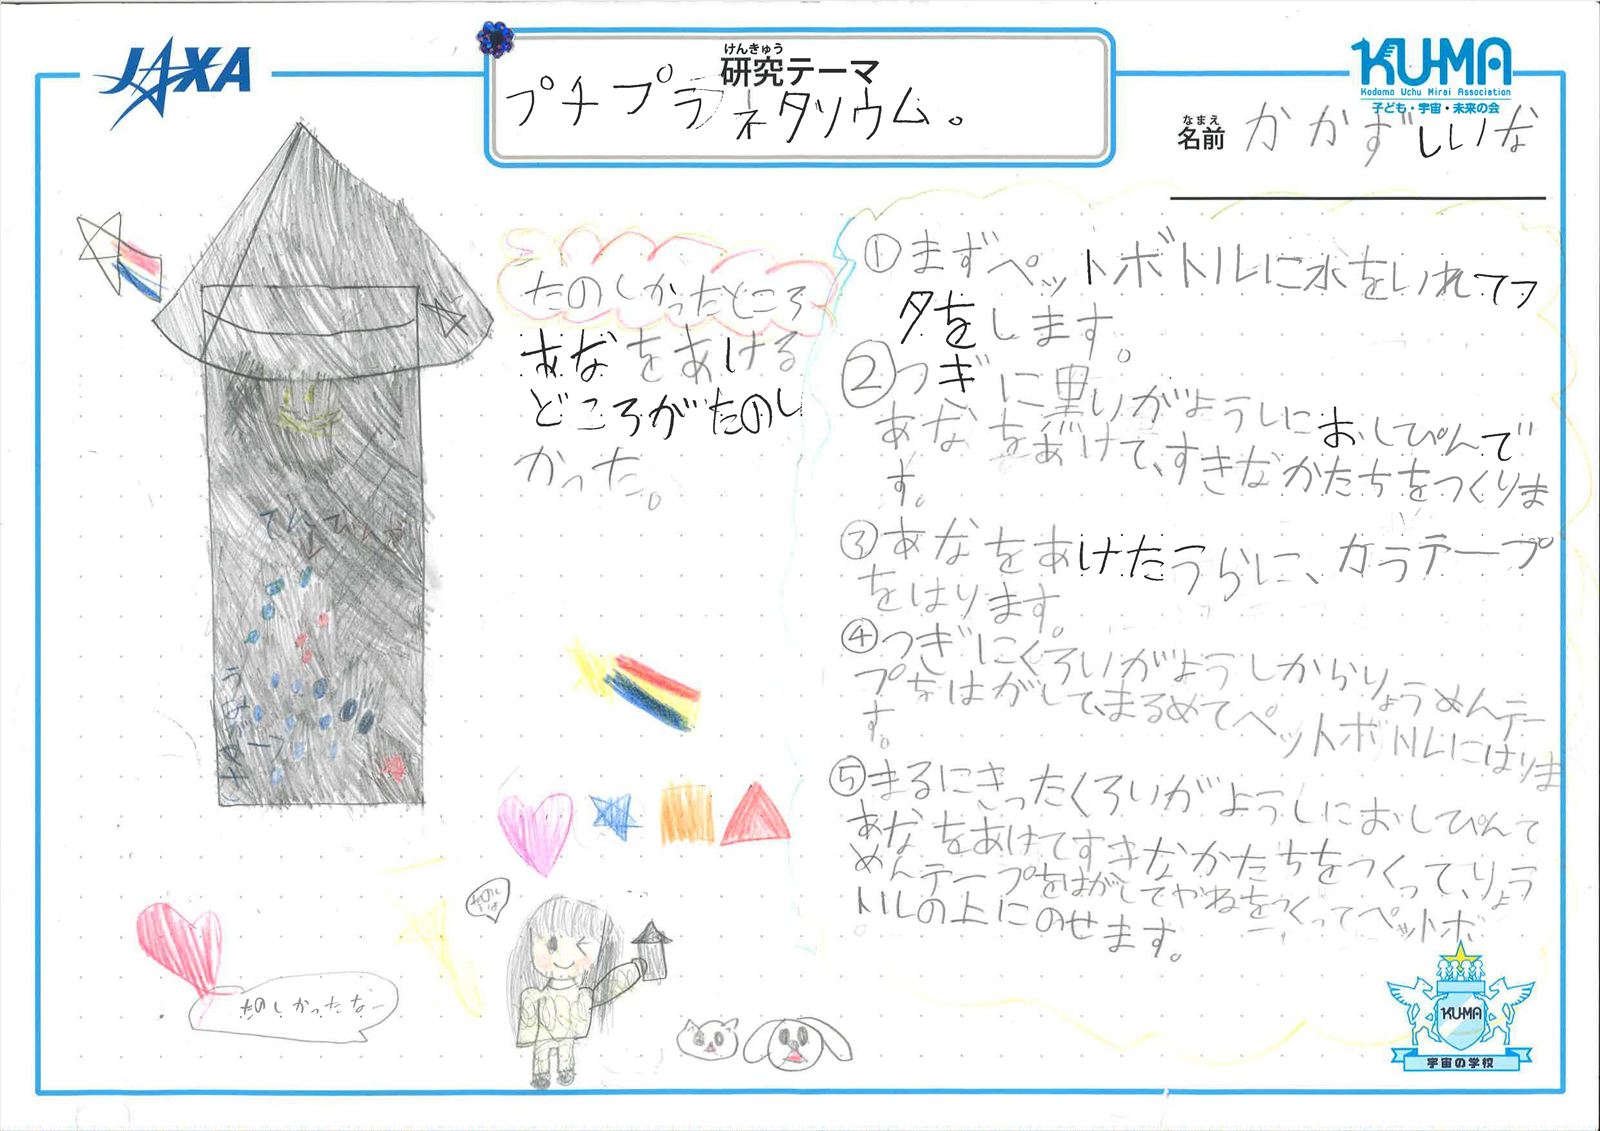 JAXA
けんきゅう
研究テーマ
プチプラネタソウム。
KU-MA
Kodomo Uchu Mirai Association
子ども・宇宙・未来の会
なまえ
名前 かかずしいな
たのしかったところ
あなをあける
どころがたのし
かった。
①まずペットボトルに水をいれてフ
タをします。
②つぎに黒いがようしにおしぴんで
あなをあけて、すきなかたちをつくりま
す。
③あなをあけたうらに、カラテープ
をはります。
④つぎにくろいがようしからりょうめんテー
プをはがして、まるめてペットボトルにはりま
す。
⑤まるにきったくろいがようしにおしぴんて
あなをあけてすきなかたちをつくって、りょう
めんテープをはがしてやねをつくってペットボ
トルの上にのせます。
たのしかったなー
KU-MA
宇宙の学校